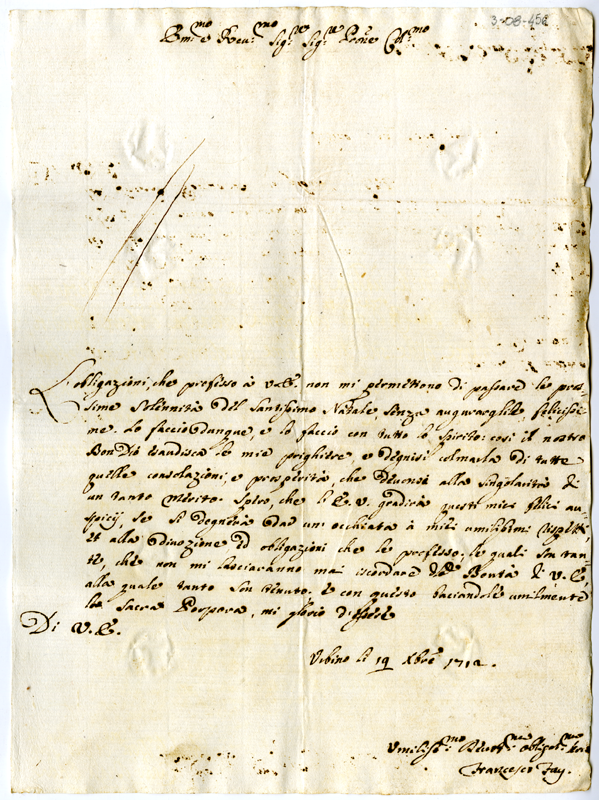 3-08-456
Em:mo e Reu:mo Sig:re Sig:re Prone Col:mo
L'obligazioni, che professo à V.E. non mi permettono di passare le pros-
sime solennità del Santissimo Natale, senza augurargliele felicissi-
me. Lo faccio dunque, e lo faccio con tutto lo spirito: così il nostro
Bon Dio esaudisca le mie preghiere, e degnisi colmarla di tutte
quelle consolazioni, e prosperità, che deuonsi alla singolarità di
un tanto merito. Spero, che l'E.V. gradirà questi miei felici au-
spicij, se si degnerà dar un'occhiata à miei umilissimi rispetti,
et alla diuozione ed obligazioni che le professo; le quali son tan-
te, che non mi lasciaranno mai scordare della Bontà di V.E.,
alla quale tanto son tenuto. E con questo baciandole umilmente
la Sacra Porpora, mi glorio d'essere
Di V.E.
Urbino li 19 Xbre 1712.
Umiliss:mo Deuot:mo Obligat:mo
Francesco Fay.